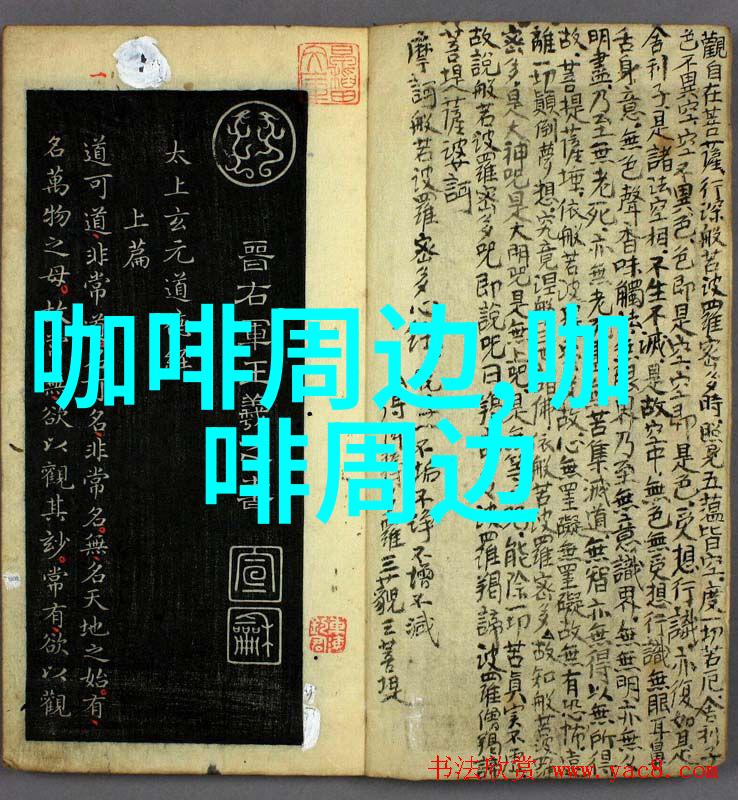 咖啡周边,咖
啡周边
觀自在菩薩行深般若波羅密多時照見五蘊皆空度一切苦厄舍利子
色不異空空不異色色即是空空即是色受想行識亦復如是
舍利子是諸法空相不生不滅是故空中無色無受想行識無眼耳鼻
舌身意無色聲香味觸法界乃至無意識界無無明亦無
明盡乃至無老死亦無老苦集滅道無智亦無得以無所得
故菩提薩埵依般若波故心無罣礙無罣礙故無有恐怖遠
離一切顛倒夢想究竟涅槃佛依般若波羅密多故知般若波
密多是大神咒是大明咒是無上咒是能除一切苦真實不
故說般若波羅密多咒即說咒曰揭波羅揭諦波羅僧揭諦
菩提薩婆訶
得羅三藐三菩提
摩訶般若波羅密多心經不垢不淨不增不減
晉右軍王羲之書
宣
龢
太上玄元道德經
上篇
道可道非常道名可名非常名無名天地之始有
名萬物之母故常無欲以觀其玅常有欲以觀
书法欣赏 www.yac8.com